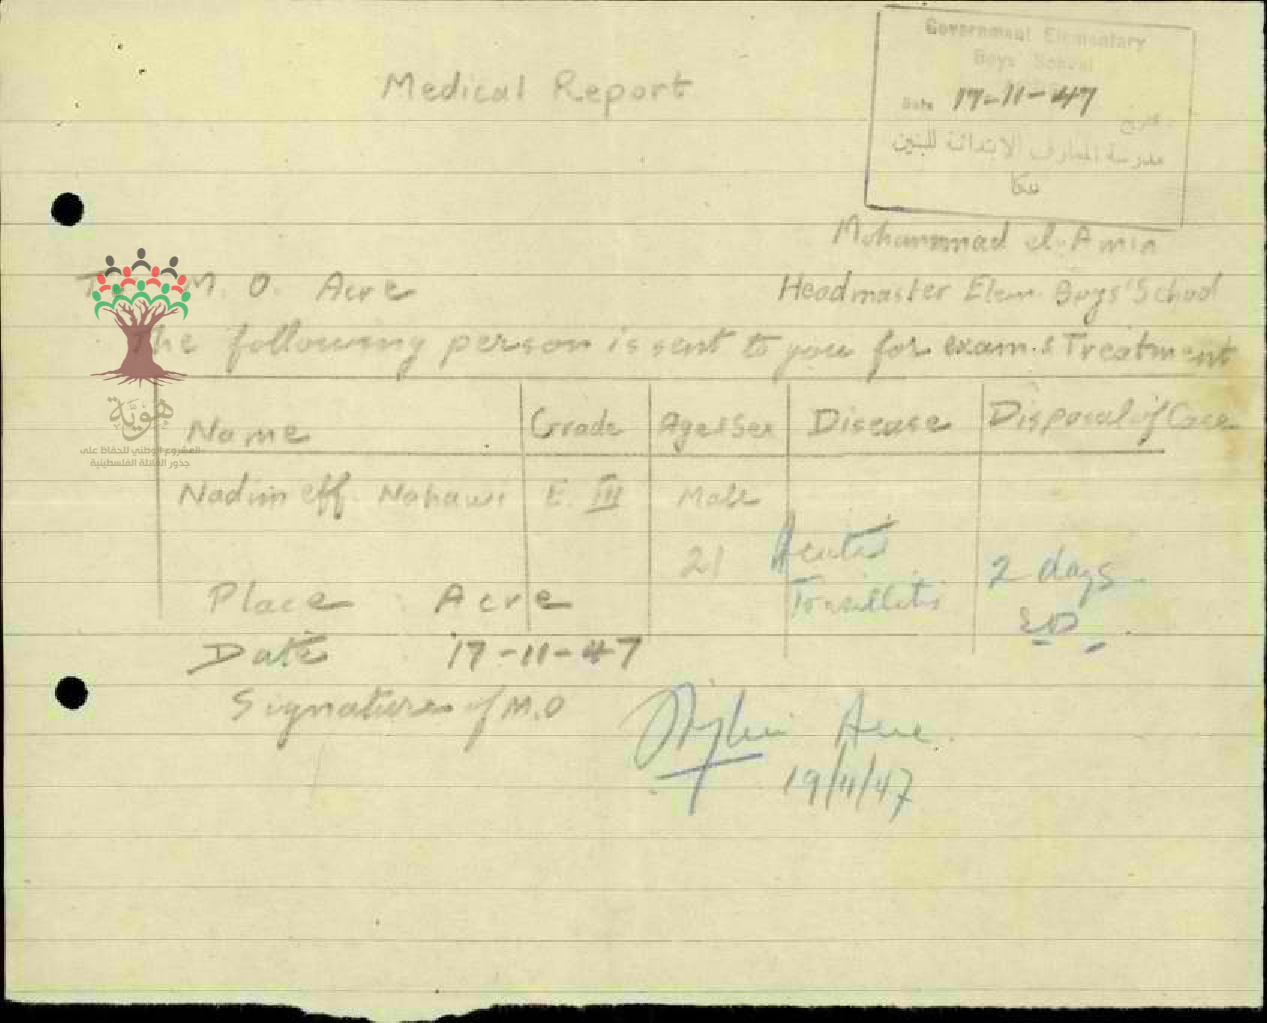 Government Elementary
Boys School
Date 17-11-47 تاريخ
مدرسة المعارف الابتدائية للبنين
عكا
Medical Report
Mohammad el-Amin
Headmaster Elem. Boys' School
M. O. Acre
The following person is sent to you for exam. & Treatment
Name Grade Age & Sex Disease Disposal of Case
Nadim eff. Nahawi E. III Male
21 Acute Tonsillitis 2 days
Place Acre
Date 17-11-47
Signature of M.O
Acre
19/11/47
هوية
المشروع الوطني للحفاظ على
جذور العائلة الفلسطينية